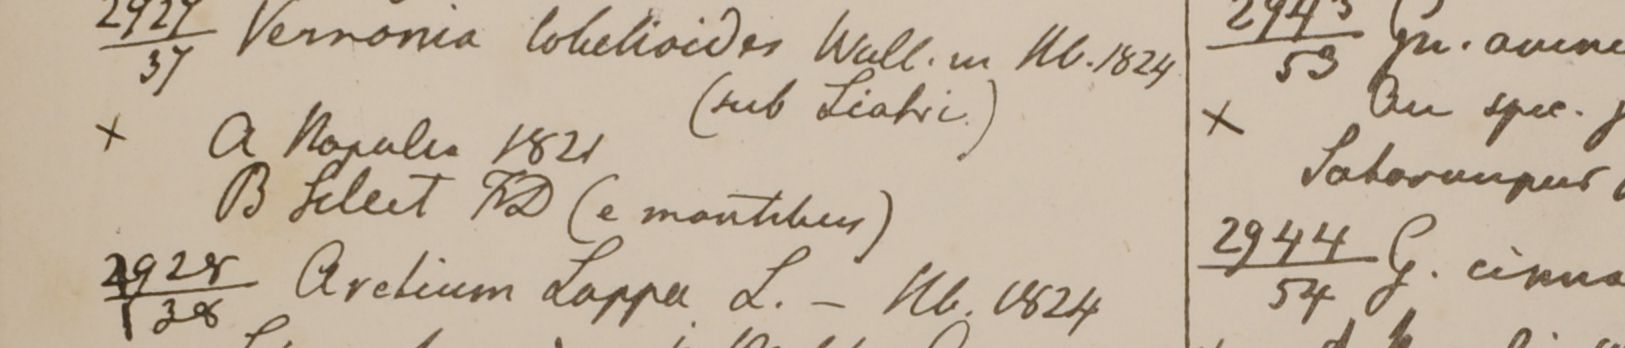 2927
37 Vernonia lobelioides Wall. in Hb. 1824
(sub Liatri.)
+ A Napalia 1821
B Silhet FD (e montibus)
2928
38 Arctium Lappa L. – Hb. 1824
2943
53 Gn.
+ An spec.
Saharunpur
2944
54 G.